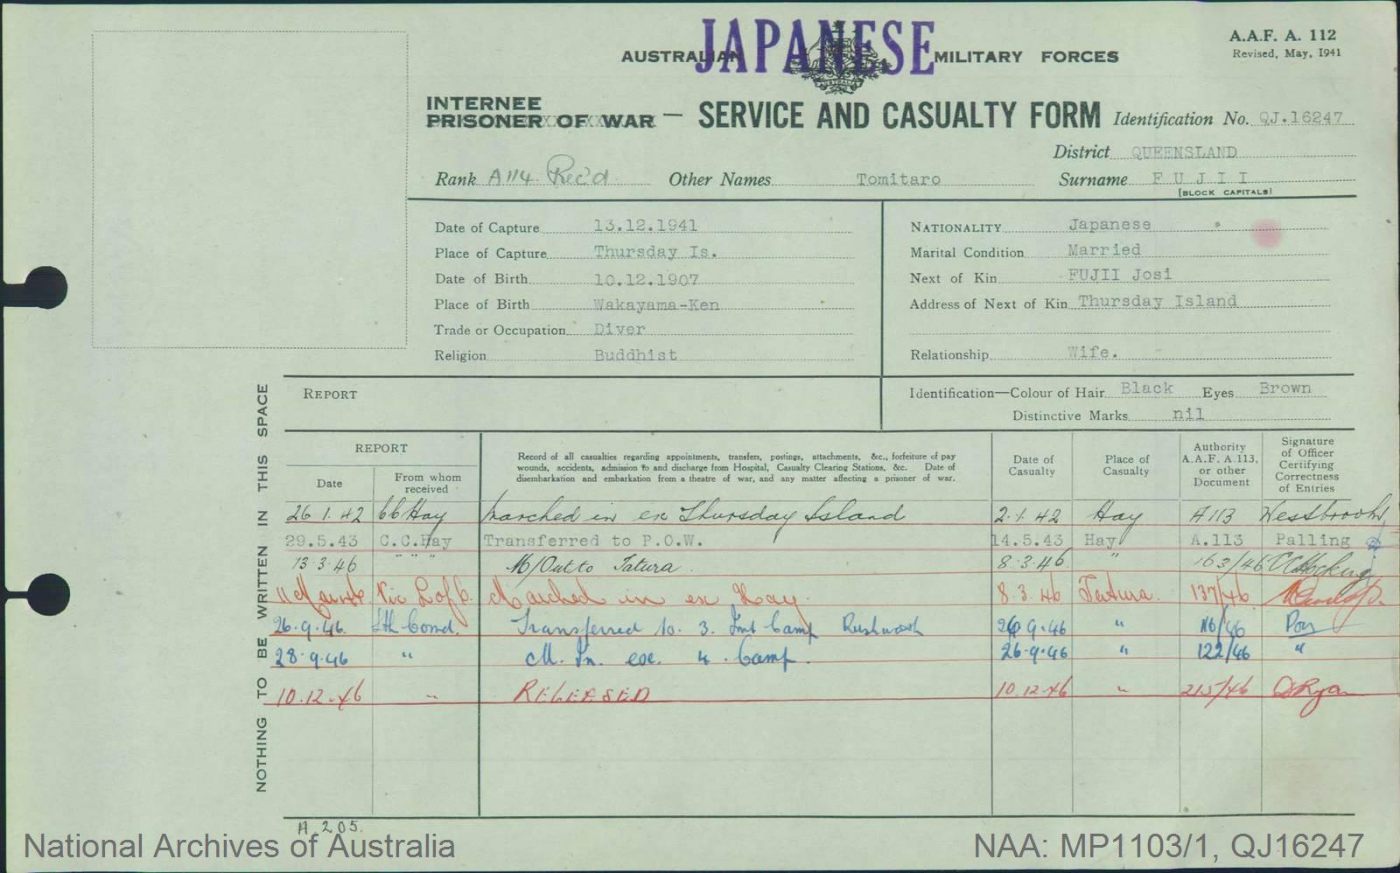 JAPANESE
A.A.F. A. 112
Revised, May, 1941
AUSTRALIAN MILITARY FORCES
INTERNEE
PRISONER OF WAR — SERVICE AND CASUALTY FORM Identification No. QJ.16247
District QUEENSLAND
Rank A114 Rec'd Other Names Tomitaro Surname FUJII
[BLOCK CAPITALS]
Date of Capture 13.12.1941
Place of Capture Thursday Is.
Date of Birth 10.12.1907
Place of Birth Wakayama-Ken
Trade or Occupation Diver
Religion Buddhist
NATIONALITY Japanese
Marital Condition Married
Next of Kin FUJII Josi
Address of Next of Kin Thursday Island
Relationship Wife.
REPORT
Identification—Colour of Hair Black Eyes Brown
Distinctive Marks nil
NOTHING TO BE WRITTEN IN THIS SPACE
REPORT
Date
From whom received
Record of all casualties regarding appointments, transfers, postings, attachments, &c., forfeiture of pay
wounds, accidents, admission to and discharge from Hospital, Casualty Clearing Stations, &c. Date of
disembarkation and embarkation from a theatre of war, and any matter affecting a prisoner of war.
Date of Casualty
Place of Casualty
Authority A.A.F. A.113, or other Document
Signature of Officer Certifying Correctness of Entries
26.1.42 CC Hay Marched in ex Thursday Island 2.1.42 Hay A113 Westbrook
29.5.43 C.C.Hay Transferred to P.O.W. 14.5.43 Hay A.113 Palling
13.3.46 " " " M/Out to Tatura 8.3.46 " 163/46 Hocking
Marched in ex Hay. 8.3.46 Tatura. 137/46
26.9.46 Sth Comd. Transferred to 3 Int Camp Rushworth 26.9.46 " 116/46
28.9.46 " M. In. exc. 4. Camp. 26.9.46 " 122/46 "
10.12.46 " RELEASED 10.12.46 " 215/46 Ryan
A 205.
National Archives of Australia
NAA: MP1103/1, QJ16247